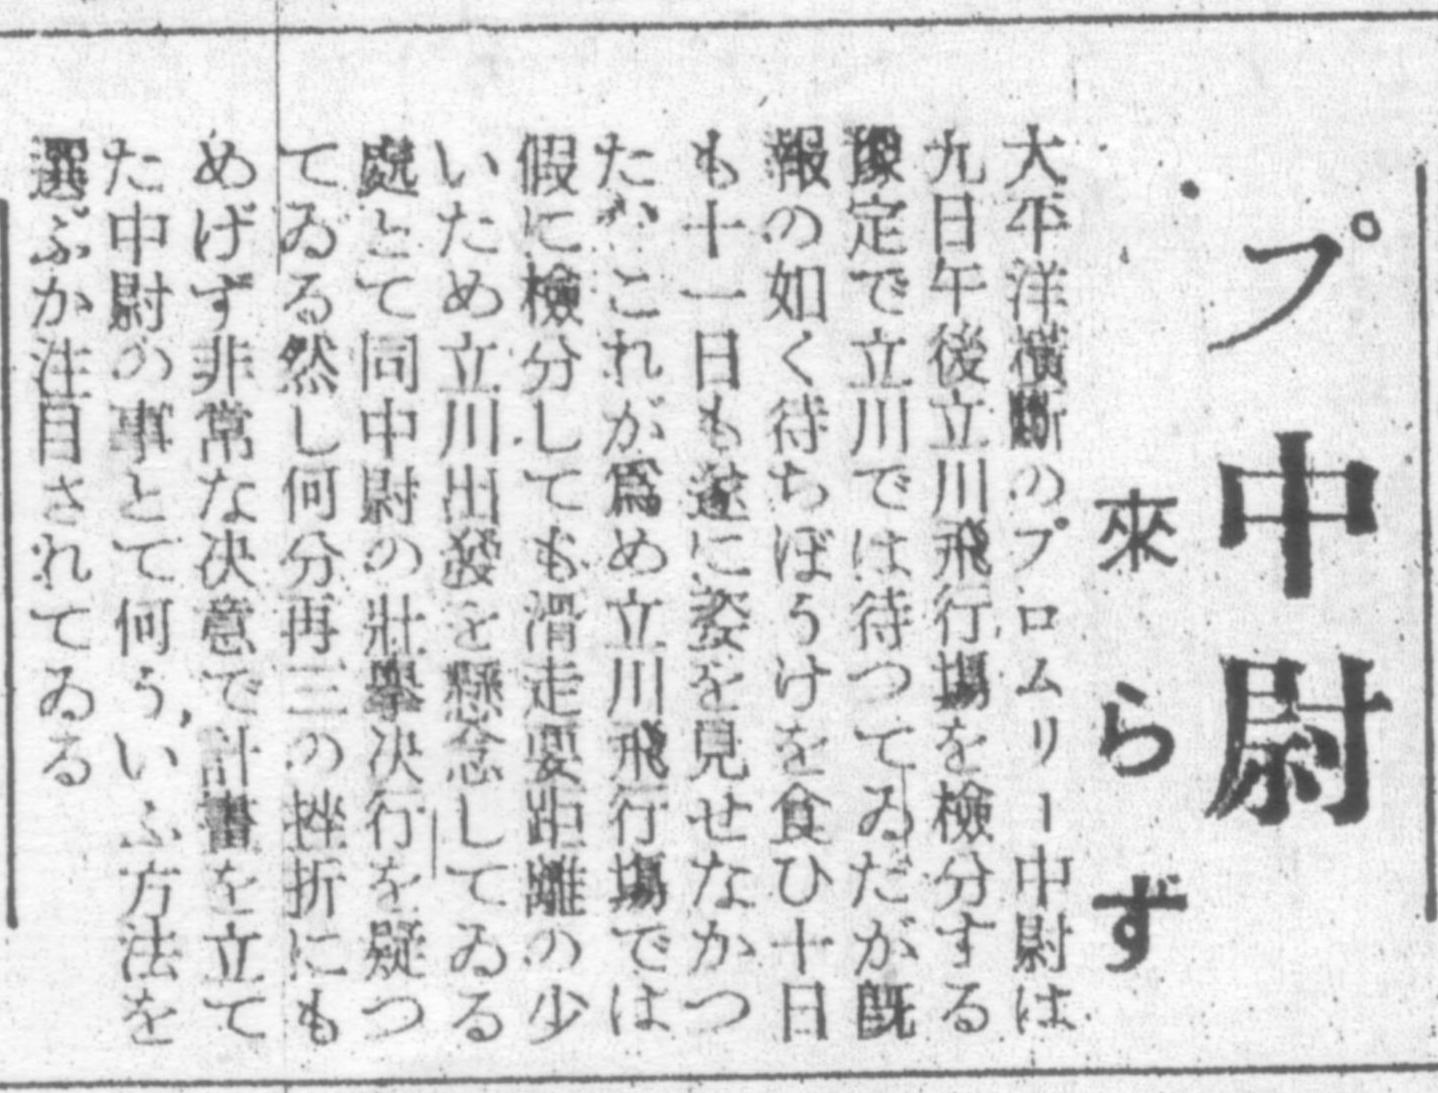 プ中尉
來らず
大平洋橫斷のプロムリー中尉は
九日午後立川飛行場を檢分する
豫定で立川では待つてゐだが既
報の如く待ちぼうけを食ひ十日
も十一日も遂に姿を見せなかつ
たがこれが爲め立川飛行場では
假に檢分しても滑走要距離の少
いため立川出發を懸念してゐる
處とて同中尉の壯擧决行を疑つ
てゐる然し何分再三の挫折にも
めげず非常な决意で計畫を立て
た中尉の事とて何ういふ方法を
選ぶか注目されてゐる